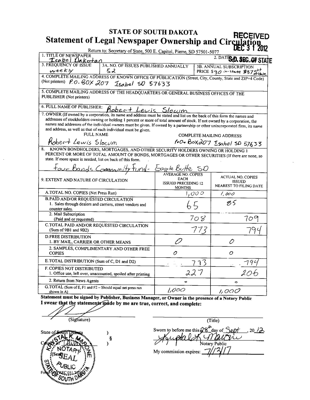 STATE OF SOUTH DAKOTA
Statement of Legal Newspaper Ownership and Circulation
RECEIVED
DEC 31 2012
S.D. SEC. OF STATE
Return to: Secretary of State, 500 E. Capitol, Pierre, SD 57501-5077
1. TITLE OF NEWSPAPER
Isabel Dakotan
2. DATE
3. FREQUENCY OF ISSUE
weekly
3A. NO. OF ISSUES PUBLISHED ANNUALLY
52
3B. ANNUAL SUBSCRIPTION
PRICE
4. COMPLETE MAILING ADDRESS OF KNOWN OFFICE OF PUBLICATION (Street, City, County, State and ZIP+4 Code)
(Not printers) P.O. Box 207 Isabel SD 57633
5. COMPLETE MAILING ADDRESS OF THE HEADQUARTERS OR GENERAL BUSINESS OFFICES OF THE
PUBLISHER (Not printers)
6. FULL NAME OF PUBLISHER:
Robert Lewis Slocum
7. OWNER (If owned by a corporation, its name and address must be stated and list on the back of this form the names and
addresses of stockholders owning or holding 1 percent or more of total amount of stock. If not owned by a corporation, the
names and addresses of the individual owners must be given. If owned by a partnership or other unincorporated firm, its name
and address, as well as that of each individual must be given.
FULL NAME
COMPLETE MAILING ADDRESS
Robert Lewis Slocum
PO Box 207 Isabel SD 57633
8. KNOWN BONDHOLDERS, MORTGAGEE, AND OTHER SECURITY HOLDERS OWNING OR HOLDING 1
PERCENT OR MORE OF TOTAL AMOUNT OF BONDS, MORTGAGES OR OTHER SECURITIES (If there are none, so
state. If more space is needed, list on back of this form.
Four Bands Community Fund - Eagle Butte SD
9. EXTENT AND NATURE OF CIRCULATION
AVERAGE NO. COPIES
EACH
ISSUES PRECEDING 12
MONTHS
ACTUAL NO. COPIES
ISSUED
NEAREST TO FILING DATE
A. TOTAL NO. COPIES (Net Press Run)
1,000
1,000
B. PAID AND/OR REQUESTED CIRCULATION
1. Sales through dealers and carriers, street vendors and
counter sales.
65
85
2. Mail Subscription
(Paid and or requested)
708
709
C. TOTAL PAID AND/OR REQUESTED CIRCULATION
(Sum of 9B1 and 9B2)
773
794
D. FREE DISTRIBUTION
1. BY MAIL, CARRIER OR OTHER MEANS
0
0
2. SAMPLES, COMPLIMENTARY AND OTHER FREE
COPIES
0
0
E. TOTAL DISTRIBUTION (Sum of C, D1 and D2)
773
794
F. COPIES NOT DISTRIBUTED
1. Office use, left over, unaccounted, spoiled after printing
227
206
2. Return from News Agents
G. TOTAL (Sum of E, F1 and F2 - Should equal net press run
shown in A)
1,000
1,000
Statement must be signed by Publisher, Business Manager, or Owner in the presence of a Notary Public
I swear that the statements made by me are true, correct, and complete:
(Signature)
(Title)
State of
Sworn to before me this 28 day of Sept, 2012
Notary Public
My commission expires:
NOTARY
SEAL
PUBLIC
SOUTH DAKOTA